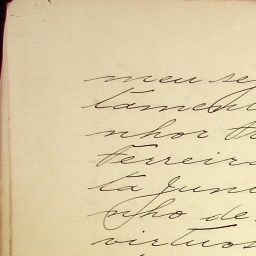 meu se
tament
nhor
Ferreira
ta Juni
nho de
virtuos